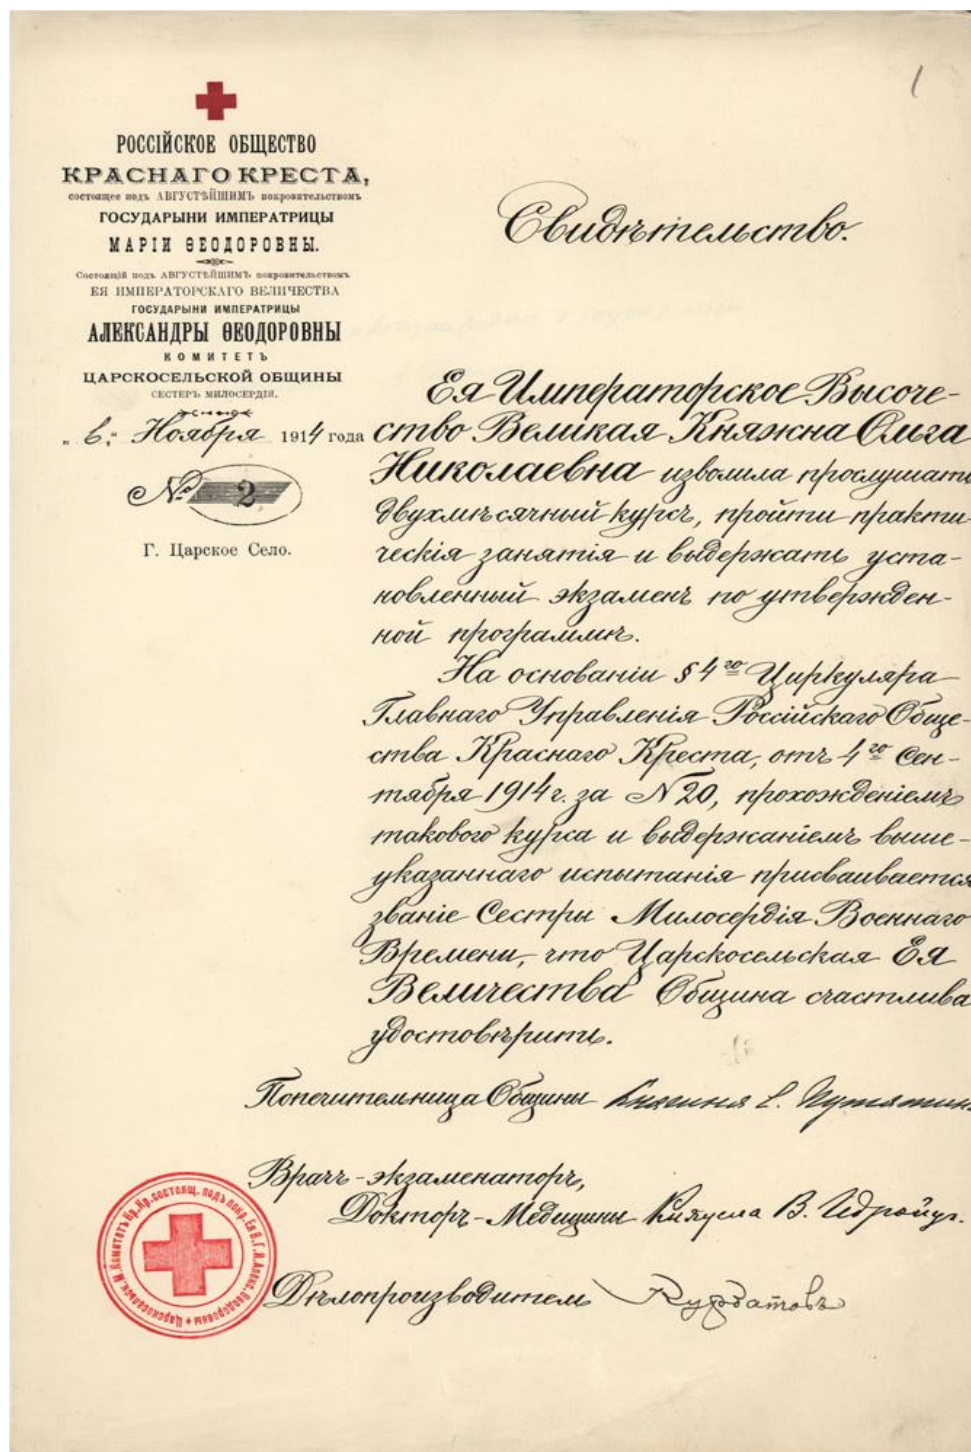 1
РОССІЙСКОЕ ОБЩЕСТВО
КРАСНАГО КРЕСТА,
состоящее подъ АВГУСТѢЙШИМЪ покровительствомъ
ГОСУДАРЫНИ ИМПЕРАТРИЦЫ
МАРІИ ѲЕОДОРОВНЫ.
Состоящій подъ АВГУСТѢЙШИМЪ покровительствомъ
ЕЯ ИМПЕРАТОРСКАГО ВЕЛИЧЕСТВА
ГОСУДАРЫНИ ИМПЕРАТРИЦЫ
АЛЕКСАНДРЫ ѲЕОДОРОВНЫ
КОМИТЕТЪ
ЦАРСКОСЕЛЬСКОЙ ОБЩИНЫ
СЕСТЕРЪ МИЛОСЕРДІЯ.
„ 6 “ Ноября 1914 года
№ 2
Г. Царское Село.
Свидѣтельство.
Ея Императорское Высоче-
ство Великая Княжна Ольга
Николаевна изволила прослушать
двухмѣсячный курсъ, пройти практи
ческія занятія и выдержать уста-
новленный экзаменъ по утвержден-
ной программѣ.
На основаніи § 4го Циркуляра
Главнаго Управленія Россійскаго Обще-
ства Краснаго Креста, отъ 4го Сен-
тября 1914 г. за № 20, прохожденіемъ
такового курса и выдержаніемъ выше-
указаннаго испытанія присваивается
званіе Сестры Милосердія Военнаго
Времени, что Царскосельская Ея
Величества Община счастлива
удостовѣрить.
Попечительница Общины Княгиня Е. Путятин
Врачъ-экзаменаторъ,
Докторъ-Медицины Княжна В. Гедройцъ.
Дѣлопроизводитель Курдатовъ
Царскосельск. М. Комитетъ Кр. Кр. состоящ. подъ покр. Ея В. Г. И. Алекс. Ѳеодоровны